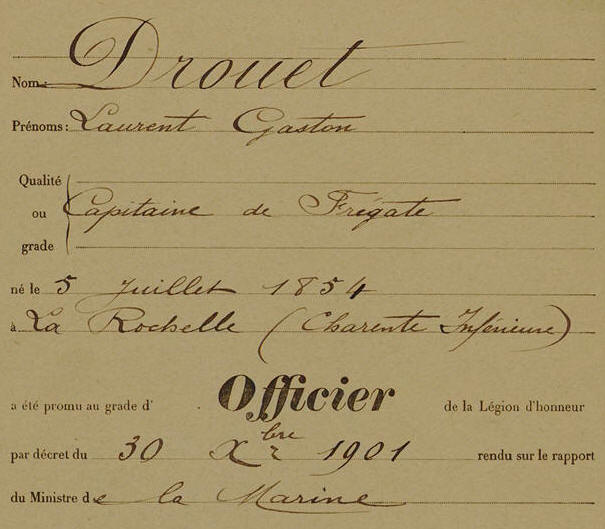 Nom: Drouet
Prénoms: Laurent Gaston
Qualité
ou Capitaine de Frégate
grade
né le 5 Juillet 1854
à La Rochelle (Charente Inférieure)
a été promu au grade d' Officier de la Légion d'honneur
par décret du 30 Xbre 1901 rendu sur le rapport
du Ministre de la Marine